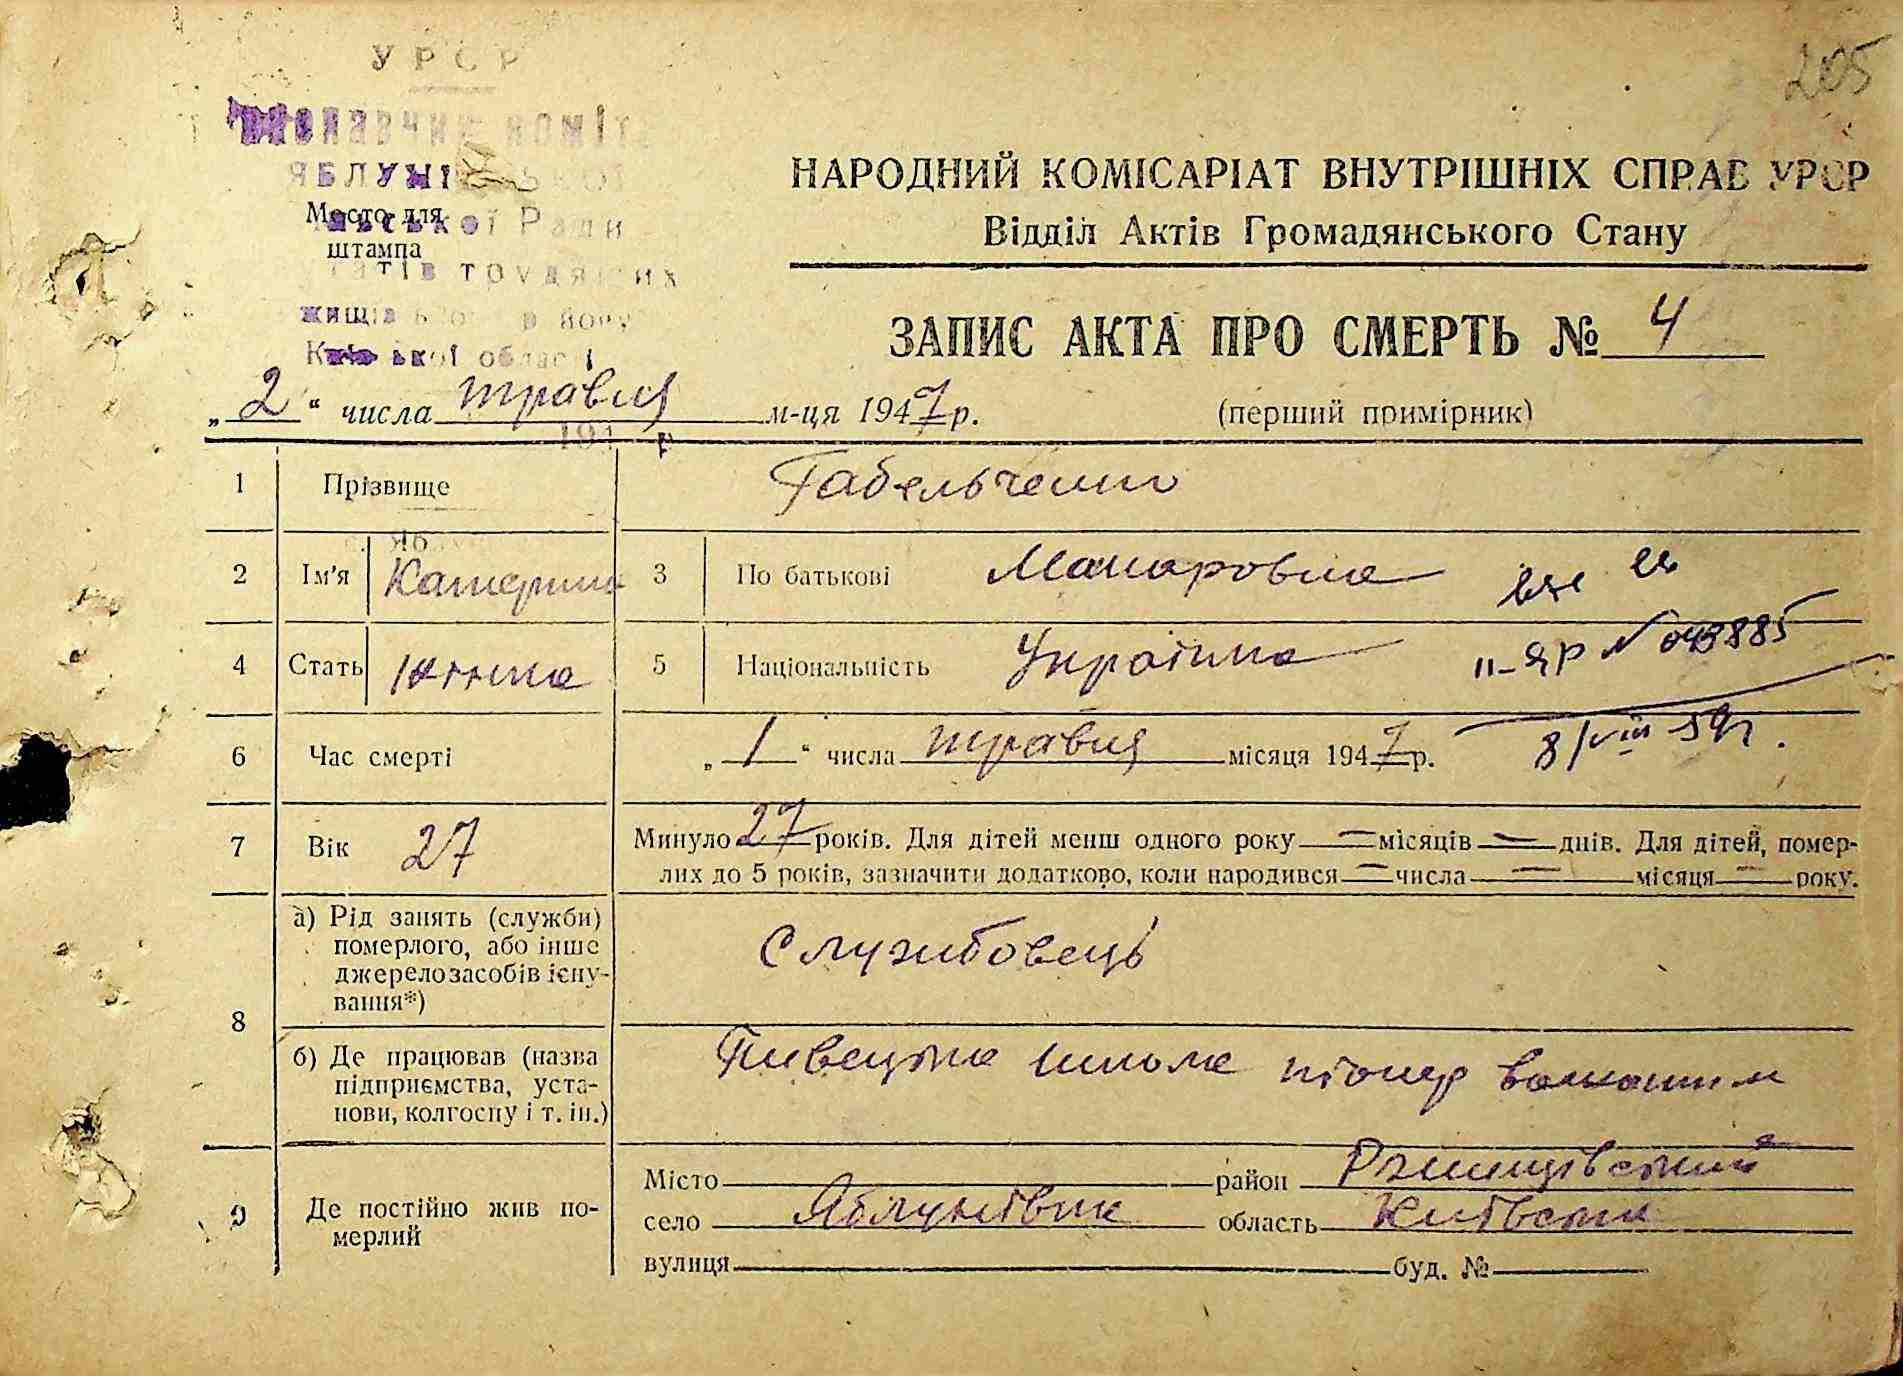 205
УРСР
Виконавчий коміт
ЯБЛУНІВСЬКОЇ
сільської Ради
Место для
штампа
татів трудящих
Ржищівського району
Київської області
НАРОДНИЙ КОМІСАРІАТ ВНУТРІШНІХ СПРАВ УРСР
Відділ Актів Громадянського Стану
ЗАПИС АКТА ПРО СМЕРТЬ № 4
„2“ числа травня м-ця 1947 р.
(перший примірник)
194 р
1 Прізвище Габельченко
2 Ім'я Катерина 3 По батькові Макаровна
4 Стать жінка 5 Національність Українка
II-ЯР № 043885
6 Час смерті „1“ числа травня місяця 1947 р.
8/VIII 59р.
7 Вік 27 Минуло 27 років. Для дітей менш одного року — місяців — днів. Для дітей, помер-
лих до 5 років, зазначити додатково, коли народився — числа — місяця — року.
8 а) Рід занять (служби)
померлого, або інше
джерело засобів існу-
вання*)
Службовець
б) Де працював (назва
підприємства, уста-
нови, колгоспу і т. ін.)
школа піонер вожатим
9 Де постійно жив по-
мерлий
Місто район Ржищівський
село Яблунівка область Київська
вулиця буд. №